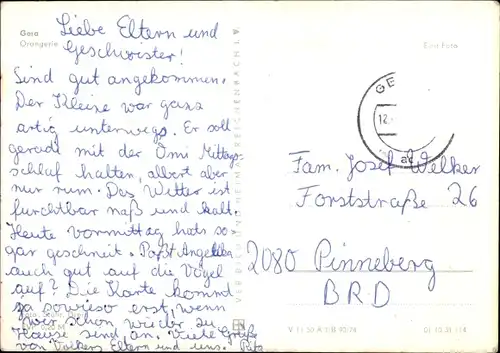 Gera
Orangerie
Liebe Eltern und
Geschwister!
Sind gut angekommen.
Der Kleine war ganz
artig unterwegs. Er soll
gerade mit der Omi Mittags-
schlaf halten, albert aber
nur rum. Das Wetter ist
furchtbar naß und kalt.
Heute vormittag hats so-
gar geschneit. Paßt Angelika
auch gut auf die Vögel
auf? Die Karte kommt
ja sowieso erst, wenn
wir schon wieder zu
Hause sind, an. Viele Grüße
von Volkers Eltern und uns.
Echt Foto
GE
12.
Fam. Josef Welker
Forststraße 26
2080 Pinneberg
BRD